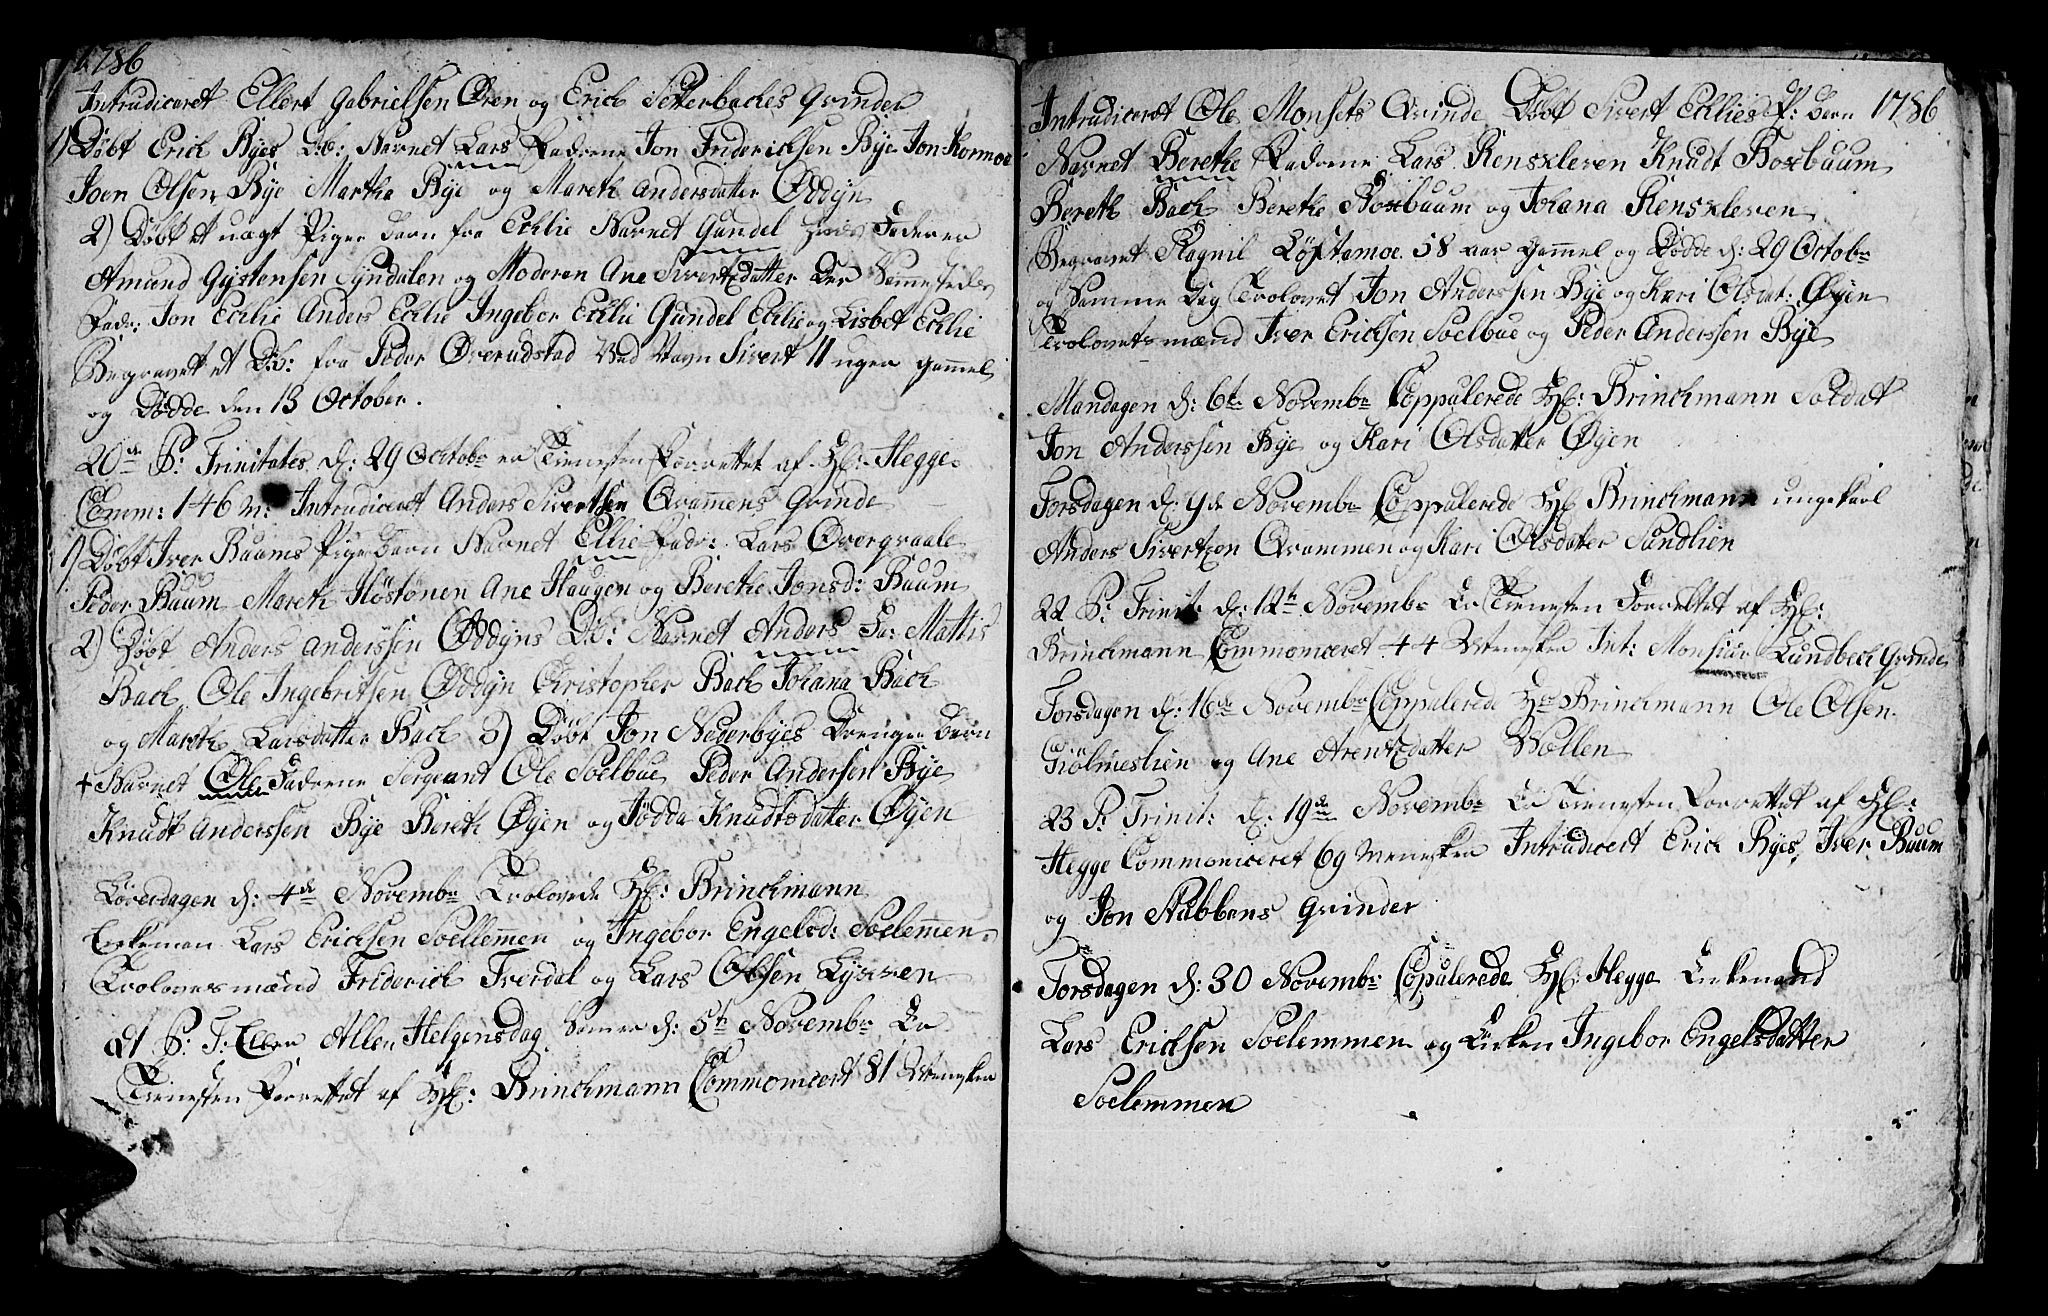 1786
Intruduceret Ellert Gabrielsen Ören og Erich Setterbaches Qvinder
1) Döbt Erich Byes D:b: Navnet Lars Fadderne Jon Friderichsen Bye Jon Kormoe
Joen Olsen Bye Martha Bye og Mareth Andersdatter Oddyn
2) Döbt et uægt Pige barn fra Echlie Navnet Gundel Fader er
Amund Gystensen Syndalen og Moderen Ane Sivertzdatter Der Sammestedes
Fadr: Jon Echlie Anders Echlie Ingebor Echlie Gundel Echlie og Lisbet Echlie
Begravet et D:b: fra Peder Överudstad Ved Navn Sivert 11 uger gammel
og Dödde den 13 October.
20de P: Trinitates d: 29 Octobr er Tienesten Forrettet af Hr: Hegge
Comm: 146 m: Intrudiceret Anders Sivertsen Qvamens Qvinde
1) Döbt Iver Buums Pige barn Navnet Ellie Fadr: Lars Overgraale
Peder Buum Mareth Höstönen Ane Haugen og Berethe Jonsd: Buum
2) Döbt Anders Anderssen Oddyns D:b: Navnet Anders Fa: Mattis
Bach Ole Ingebritsen Oddyn Christopher Bach Johana Bach
og Mareth Larsdatter Bach 3) Döbt Jon Nederbyes Drenge barn
+ Navnet Ole Fadderne Sergeant Ole Soelbue Peder Andersen Bye
Knudt Anderssen Bye Bereth Öyen og Jödda Knudtsdatter Öyen
Löverdagen d: 4de Novembr Trolovede Hr: Brinchmann
Enkeman Lars Erichsen Soellemmen og Ingebor Engelsd: Soelemmen
Trolovesmænd Friderich Tverdal og Lars Olsen Lysven
21 P: T: Eller Allen Helgensdag Samme d: 5te Novembr Er
Tienesten Forrettet af Hr: Brinchmann Commonicert 81 Mennesker
Intrudiceret Ole Monsets Qvinde Döbt Sivert Echlies P: barn 1786
Navnet Berethe Fadderne Lars Rensxleven Knudt Boxbuum
Bereth Bach Berethe Boxbuum og Johana Rensxleven
Begravet Ragnil Löftamoe 58 aar gammel og Dödde d: 29 Octobr
og Samme Dag Trolovet Jon Anderssen Bye og Kari Olsdat: Öyen
Trolovetsmænd Iver Erichsen Soelbue og Peder Anderssen Bye
Mandagen d: 6te Novembr Coppulerede Hr: Brinchmann Soldat
Jon Anderssen Bye og Kari Olsdatter Öyen
Torsdagen d: 9de Novembr Coppulerede Hr Brinchmann ungekarl
Anders Sivertzen Qvammen og Kari Olsdatter Sundlien
22 P: Trinit: d: 12te Novembr Er Tienesten Forrettet af Hr:
Brinchmann Commoniceret 44 Mennesker Int: Monsiur Lundbech Qvinde
Torsdagen d: 16de Novembr Coppulerede Hr Brinchmann Ole Olsen
Giölmeslien og Ane Arentzdatter Wollen
23 P: Trinit: d: 19de Novembr Er Tienesten Forrettet af Hr:
Hegge Commoniceret 69 Menesker Intrudicert Erich Byes, Iver Buum
og Jon Stubbens Qvinder
Torsdagen d: 30 Novembr Copulerede Hr: Hegge Enkemand
Lars Erichsen Soelemmen og Enken Ingebor Engelsdatter
Soelemmen